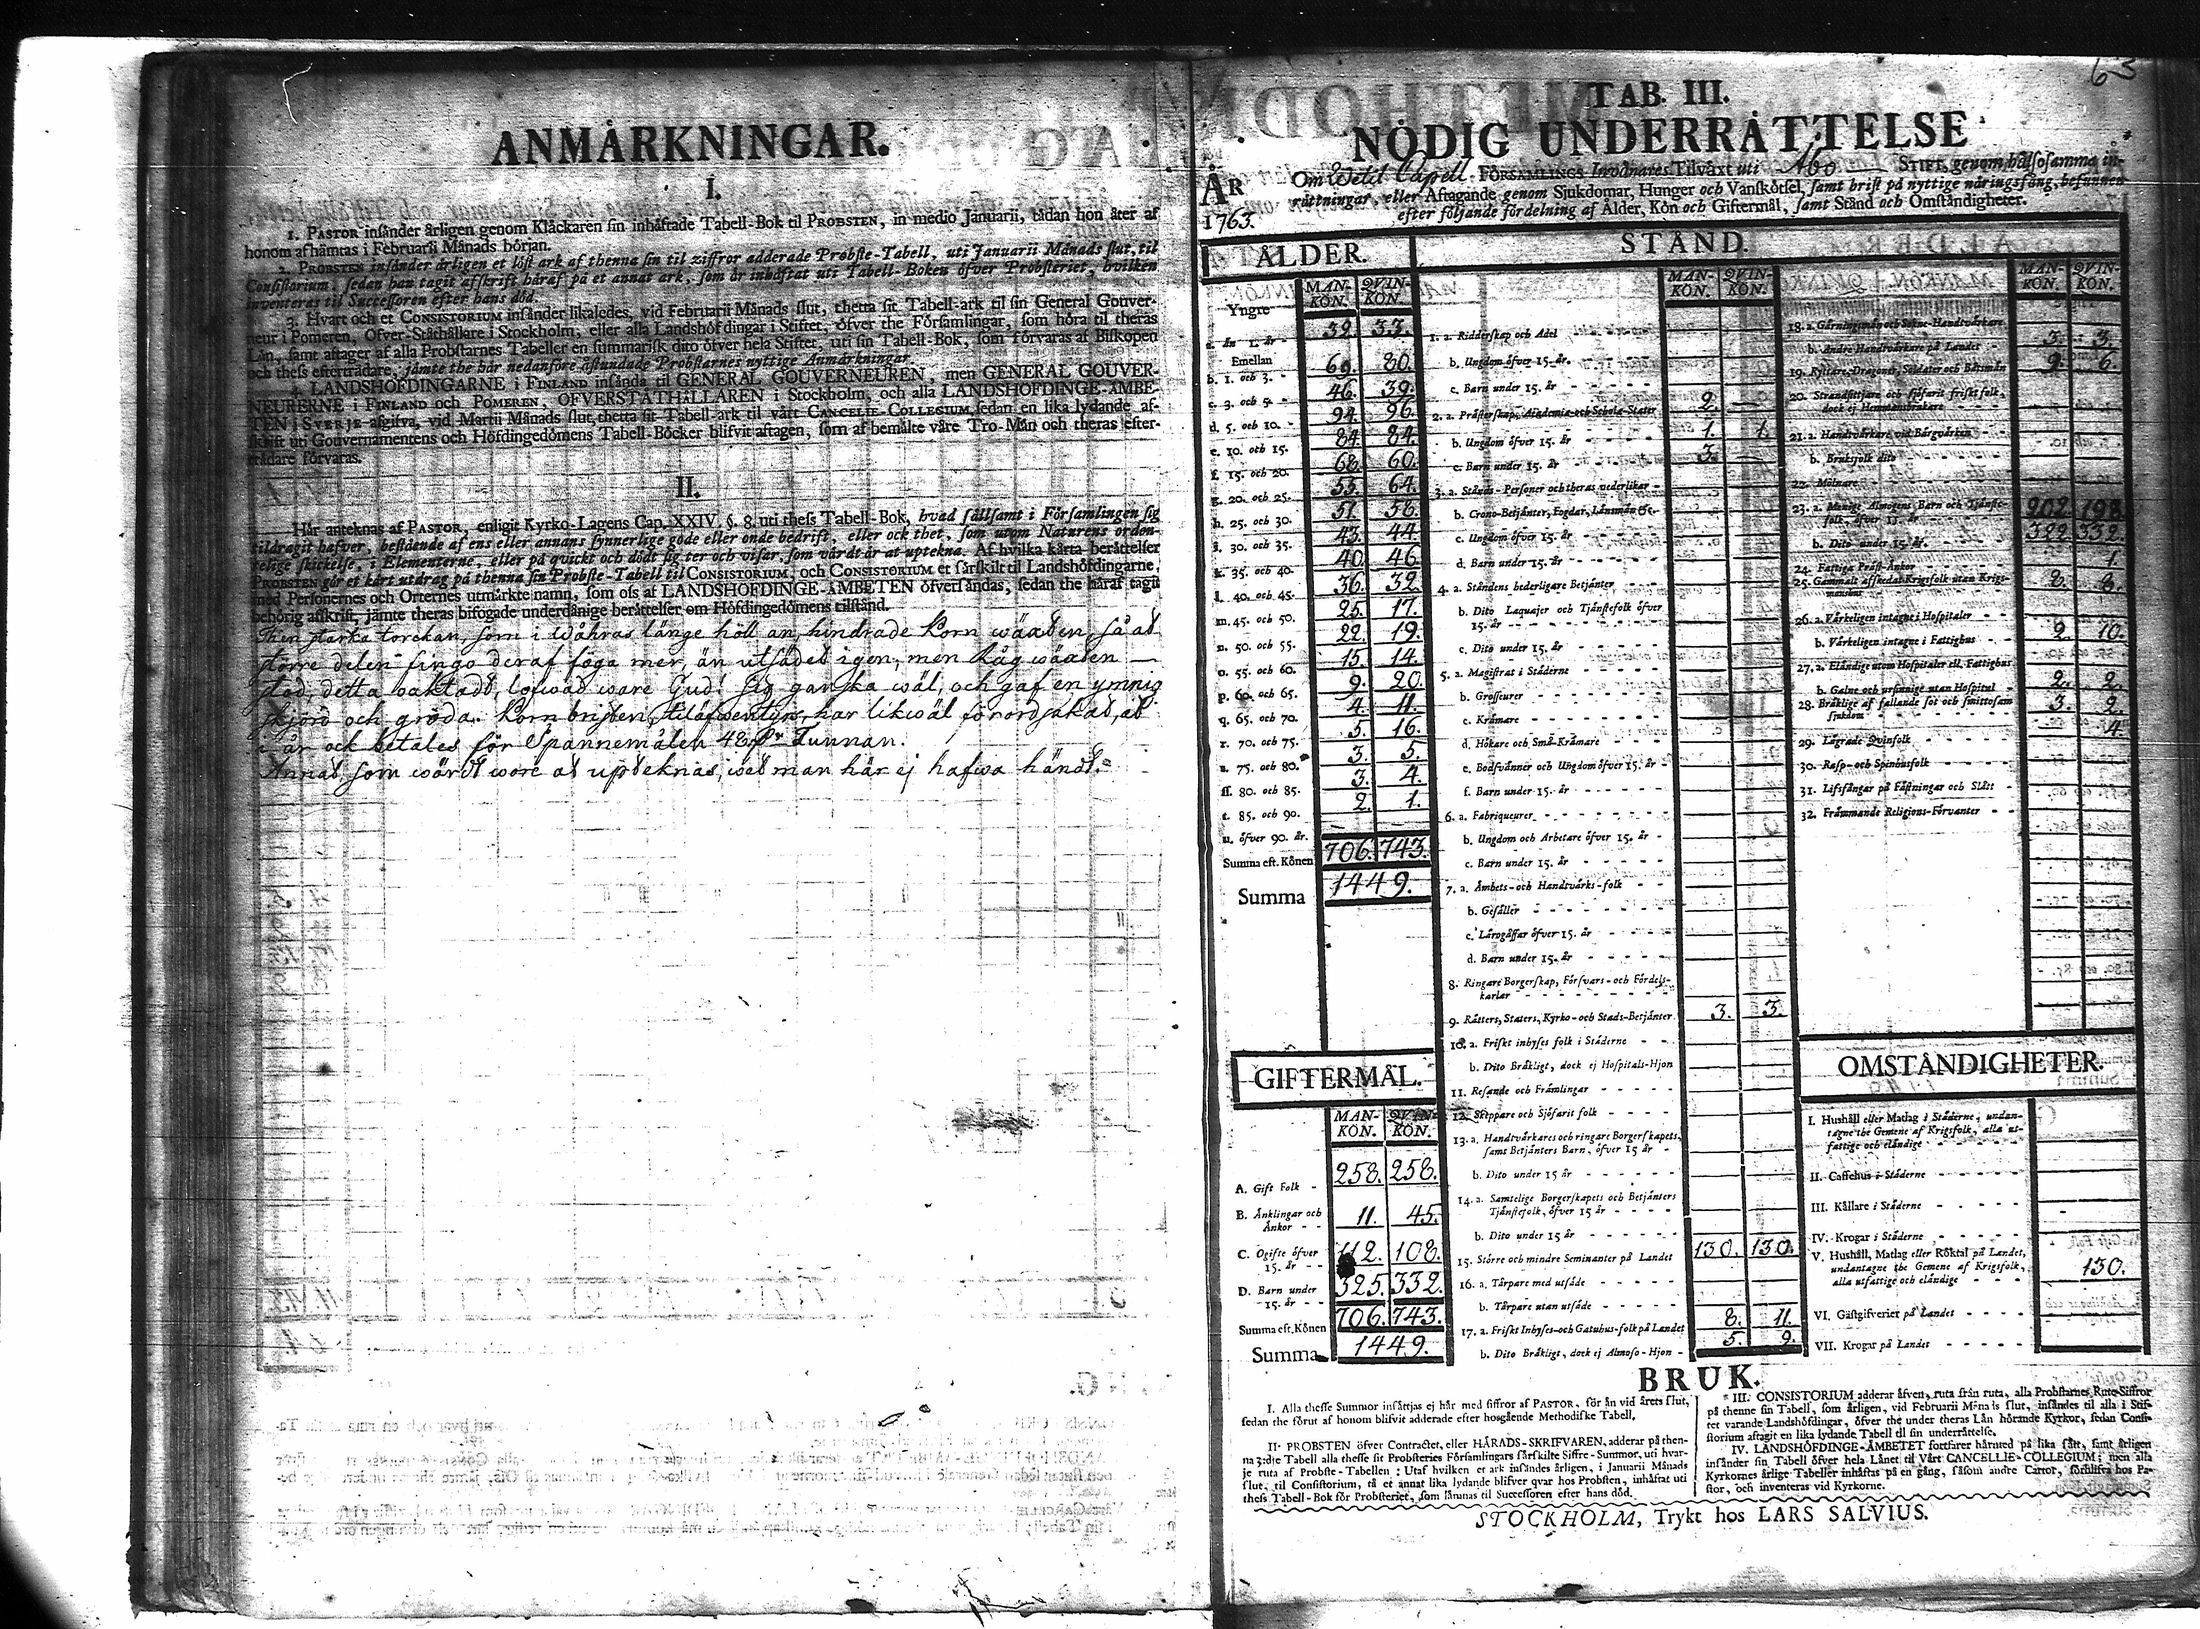 ANMÄRKNINGAR.
I.
1. PASTOR insänder årligen genom Klåckaren sin inhäftade Tabell-Bok til PROBSTEN, in medio Januarii, tådan hon åter af
honom afhämtas i Februarii Månads början.
2. PROBSTEN insänder årligen et löst ark af thenna sin til ziffror adderade Probste-Tabell, uti Januarii Månads slut, til
Consistorium, sedan han tagit afskrift häraf på et annat ark, som är inhäftat uti Tabell-Boken öfver Probsteriet, hvilken
inventeras til Successoren efter hans död.
3. Hvart och et CONSISTORIUM insänder likaledes, vid Februarii Månads slut, thetta sit Tabell-ark til sin General Gouver-
neur i Pomeren, Öfver-Ståthållare i Stockholm, eller alla Landshöfdingar i Stiftet, öfver the Församlingar, som höra til theras
Län, samt aftager af alla Probstarnes Tabeller en summarisk dito öfver hela Stiftet, uti sin Tabell-Bok, som förvaras af Biskopen
och thess efterträdare, jämte the här nedanföre åstundade Probstarnes nyttige Anmärkningar.
LANDSHÖFDINGARNE i FINLAND insända til GENERAL GOUVERNEUREN, men GENERAL GOUVER-
NEURERNE i FINLAND och POMEREN, ÖFVERSTÅTHÅLLAREN i Stockholm, och alla LANDSHÖFDINGE-ÄMBE-
TEN i SVERJE afgifva, vid Martii Månads slut, thetta sit Tabell-ark til vårt CANCELIE-COLLEGIUM, sedan en lika lydande af-
skrift uti Gouvernamentens och Höfdingedömens Tabell-Böcker blifvit aftagen, som af bemälte våre Tro-Män och theras efter-
trädare förvaras.
II.
Här anteknas af PASTOR, enligit Kyrko-Lagens Cap. XXIV. §. 8. uti thess Tabell-Bok, hvad sällsamt i Församlingen sig
tildragit hafver, bestående af ens eller annans synnerlige gode eller onde bedrift, eller ock thet, som utom Naturens orden-
telige skickelse, i Elementerne, eller på quickt och dödt sig ter och visar, som värdt är at uptekna. Af hvilka kårta berättelser
PROBSTEN gör et kårt utdrag på thenna sin Probste-Tabell til CONSISTORIUM, och CONSISTORIUM et särskilt til Landshöfdingarne,
med Personernes och Orternes utmärkte namn, som oss af LANDSHÖFDINGE-ÄMBETEN öfversändas, sedan the häraf tagit
behörig afskrift, jämte theras bifogade underdånige berättelser om Höfdingedömens tilstånd.
Then starka torckan, som i wåhras länge höll an, hindrade Korn wäxten så at
större delen fingo deraf föga mer, än utsädet igen, men Råg wäxten
stod, detta oaktadt, lofwad ware Gud! sig ganska wäl, och gaf en ymnig
skjörd och gröda. Korn bristen, har likwäl förordsakat, at
i år ock betales för Spannemålen 48 Tunnan.
Annat, som wärdt wore at upteknas, wet man här ej hafwa händt.
63
TAB. III.
NÖDIG UNDERRÄTTELSE
ÅR 1763.
Om Wetil Capell FÖRSAMLINGS Invånares Tilväxt uti Åbo STIFT, genom hälsosamma in-
rättningar, eller Aftagande genom Sjukdomar, Hunger och Vanskötsel, samt brist på nyttige näringsfång, befunnen
efter följande fördelning af Ålder, Kön och Giftermål, samt Stånd och Omständigheter.
ÅLDER.
MAN-KÖN. QVIN-KÖN.
Yngre
a. än 1. år 39. 33.
Emellan
b. 1. och 3. 69. 80.
c. 3. och 5. 46. 39.
d. 5. och 10. 94. 96.
e. 10. och 15. 84. 84.
f. 15. och 20. 68. 60.
g. 20. och 25. 55. 64.
h. 25. och 30. 51. 56.
i. 30. och 35. 43. 44.
k. 35. och 40. 40. 46.
l. 40. och 45. 36. 32.
m. 45. och 50. 25. 17.
n. 50. och 55. 22. 19.
o. 55. och 60. 15. 14.
p. 60. och 65. 9. 20.
q. 65. och 70. 4. 11.
r. 70. och 75. 5. 16.
s. 75. och 80. 3. 5.
ss. 80. och 85. 3. 4.
t. 85. och 90. 2. 1.
u. öfver 90. år.
Summa eft. Könen 706. 743.
Summa 1449.
GIFTERMÅL.
MAN-KÖN. QVIN-KÖN.
A. Gift Folk 258. 258.
B. Änklingar och Änkor 11. 45.
C. Ogifte öfver 15. år 112. 108.
D. Barn under 15. år 325. 332.
Summa eft. Könen 706. 743.
Summa 1449.
STÅND.
MAN-KÖN. QVIN-KÖN.
1. a. Ridderskap och Adel
b. Ungdom öfver 15. år
c. Barn under 15. år
2. a. Prästerskap, Academie och Schole-Stater 2. —
b. Ungdom öfver 15. år 1. 1.
c. Barn under 15. år 3. —
3. a. Stånds-Personer och theras vederlikar
b. Crono-Betjänter, Fogdar, Länsmän &c.
c. Ungdom öfver 15. år
d. Barn under 15. år
4. a. Ståndens hederligare Betjänter
b. Dito Laquajer och Tjänstefolk öfver 15. år
c. Dito under 15. år
5. a. Magistrat i Städerne
b. Grosseurer
c. Krämare
d. Hökare och Små-Krämare
e. Bodsvänner och Ungdom öfver 15. år
f. Barn under 15. år
6. a. Fabriqueurer
b. Ungdom och Arbetare öfver 15. år
c. Barn under 15. år
7. a. Ämbets- och Handtvärks-folk
b. Gesäller
c. Lärogåssar öfver 15. år
d. Barn under 15. år
8. Ringare Borgerskap, Försvars- och Fördels-karlar
9. Rätters, Staters, Kyrko- och Stads-Betjänter 3. 3.
10. a. Friskt inhyses folk i Städerne
b. Dito Bräkligt, dock ej Hospitals-Hjon
11. Resande och Främlingar
12. Skeppare och Sjöfarit folk
13. a. Handtvärkares och ringare Borgerskapets, samt Betjänters Barn, öfver 15 år
b. Dito under 15 år
14. a. Samtelige Borgerskapets och Betjänters Tjänstefolk, öfver 15 år
b. Dito under 15 år
15. Större och mindre Hemmanter på Landet 130. 130.
16. a. Tårpare med utsäde
b. Tårpare utan utsäde
17. a. Friskt Inhyses- och Gatuhus-folk på Landet 8. 11.
b. Dito Bräkligt, dock ej Almoso-Hjon 5. 9.
MAN-KÖN. QVIN-KÖN.
18. a. Gärningsmän och Sokne-Handtvärkare
b. Andre Handtvärkare på Landet 3. 3.
19. Ryttare, Dragoner, Soldater och Båtsmän 9. 6.
20. Strandsittjare och sjöfarit friskt folk, dock ej Hemmansbrukare
21. a. Handtvärkare vid Bärgvärken
b. Bruksfolk dito
22. Mölnare
23. a. Menige Almogens Barn och Tjänste-folk, öfver 15. år 202. 198.
b. Dito under 15. år. 322. 332.
24. Fattiga Präst-Änkor 1.
25. Gammalt afskedat Krigsfolk utan Krigs-manshus 8. 8.
26. a. Värkeligen intagne i Hospitaler
b. Värkeligen intagne i Fattighus 2. 10.
27. a. Eländige utom Hospitaler ell. Fattighus
b. Galne och ursinnige utan Hospital 2. 2.
28. Bräklige af fallande sot och smittosam sjukdom 3. 2.
29. Lägrade Qvinfolk 4.
30. Rasp- och Spinhusfolk
31. Lifsfångar på Fästningar och Slått
32. Främmande Religions-Förvanter
OMSTÄNDIGHETER.
I. Hushåll eller Matlag i Städerne, undan-
tagne the Gemene af Krigsfolk, alla ut-
fattige och eländige
II. Caffehus i Städerne
III. Källare i Städerne
IV. Krogar i Städerne
V. Hushåll, Matlag eller Röktal på Landet,
undantagne the Gemene af Krigsfolk,
alla utfattige och eländige 130.
VI. Gästgifverier på Landet
VII. Krogar på Landet
BRUK.
I. Alla thesse Summor insättjas ej här med siffror af PASTOR, för än vid årets slut,
sedan the förut af honom blifvit adderade efter hosgående Methodiske Tabell.
II. PROBSTEN öfver Contractet, eller HÄRADS-SKRIFVAREN, adderar på then-
na 3:die Tabell alla thesse sit Probsteries Församlingars särskilte Siffre-Summor, uti hvar-
je ruta af Probste-Tabellen: Utaf hvilken et ark insändes årligen, i Januarii Månads
slut, til Consistorium, tå et annat lika lydande blifver qvar hos Probsten, inhäftat uti
thess Tabell-Bok för Probsteriet, som lämnas til Successoren efter hans död.
III. CONSISTORIUM adderar äfven, ruta från ruta, alla Probstarnes Rute-Siffror
på thenne sin Tabell, som årligen, vid Februarii Månads slut, insändes til alla i Stif-
tet varande Landshöfdingar, öfver the under theras Län hörande Kyrkor, sedan Consi-
storium aftagit en lika lydande Tabell til sin underrättelse.
IV. LANDSHÖFDINGE-ÄMBETET fortfarer härmed på lika sätt, samt årligen
insänder sin Tabell öfver hela Länet til Vårt CANCELLIE-COLLEGIUM; men alla
Kyrkornes årlige Tabeller inhäftas på en gång, såsom andre Cartor, förblifva hos Pa-
stor, och inventeras vid Kyrkorne.
STOCKHOLM, Trykt hos LARS SALVIUS.